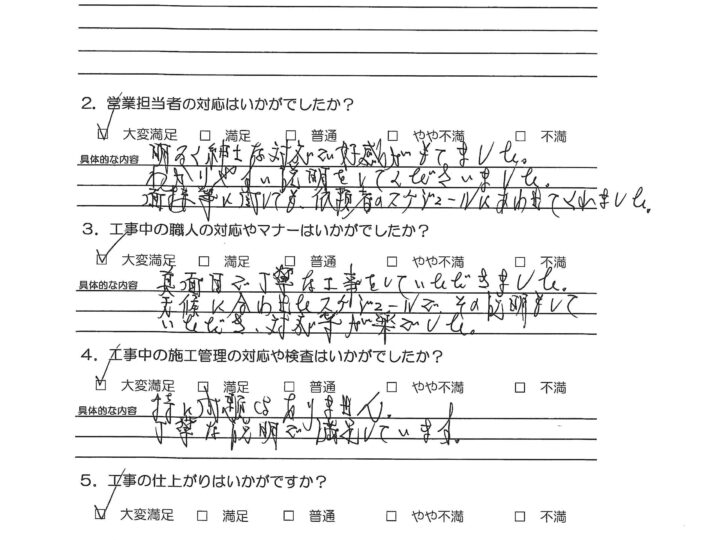 2. 営業担当者の対応はいかがでしたか?
☑ 大変満足 □ 満足 □ 普通 □ やや不満 □ 不満
具体的な内容 明るく紳士な対応で好感がもてました。
わかりやすい説明をしてくださいました。
面接等に関しても、依頼者のスケジュールにあわせてくれました。
3. 工事中の職人の対応やマナーはいかがでしたか?
☑ 大変満足 □ 満足 □ 普通 □ やや不満 □ 不満
具体的な内容 真面目で丁寧な工事をしていただきました。
天候に合わせたスケジュールで、その説明もして
いただき、対応等が楽でした。
4. 工事中の施工管理の対応や検査はいかがでしたか?
☑ 大変満足 □ 満足 □ 普通 □ やや不満 □ 不満
具体的な内容 特に問題はありません。
丁寧な説明で満足しています。
5. 工事の仕上がりはいかがですか?
☑ 大変満足 □ 満足 □ 普通 □ やや不満 □ 不満